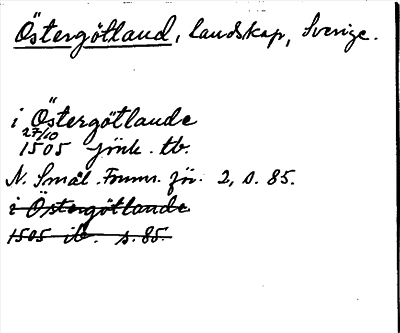 Östergötland, landskap, Sverige.
i Östergötlande
27/10
1505 Jönk. tb.
N. Smål. Fornm. för. 2, s. 85.
i Östergötlande
1505 ib. s. 85.